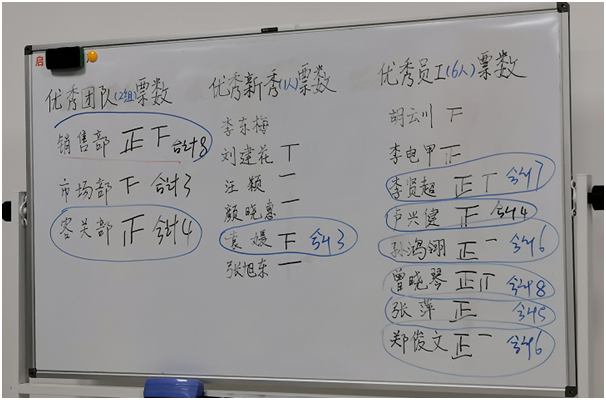 启
优秀团队(2组)票数
销售部 正下 合计8
市场部 下 合计3
客关部 正 合计4
优秀新秀(1人)票数
李东梅
刘建花 丅
汪颖 一
颜晓惠 一
袁媛 下 合计3
张旭东 一
优秀员工(6人)票数
胡云川 下
李电甲 正
李贤超 正丅 合计7
卢兴健 正 合计4
孙鸿翊 正一 合计6
曾晓琴 正 合计8
张萍 正 合计5
郑俊文 正一 合计6